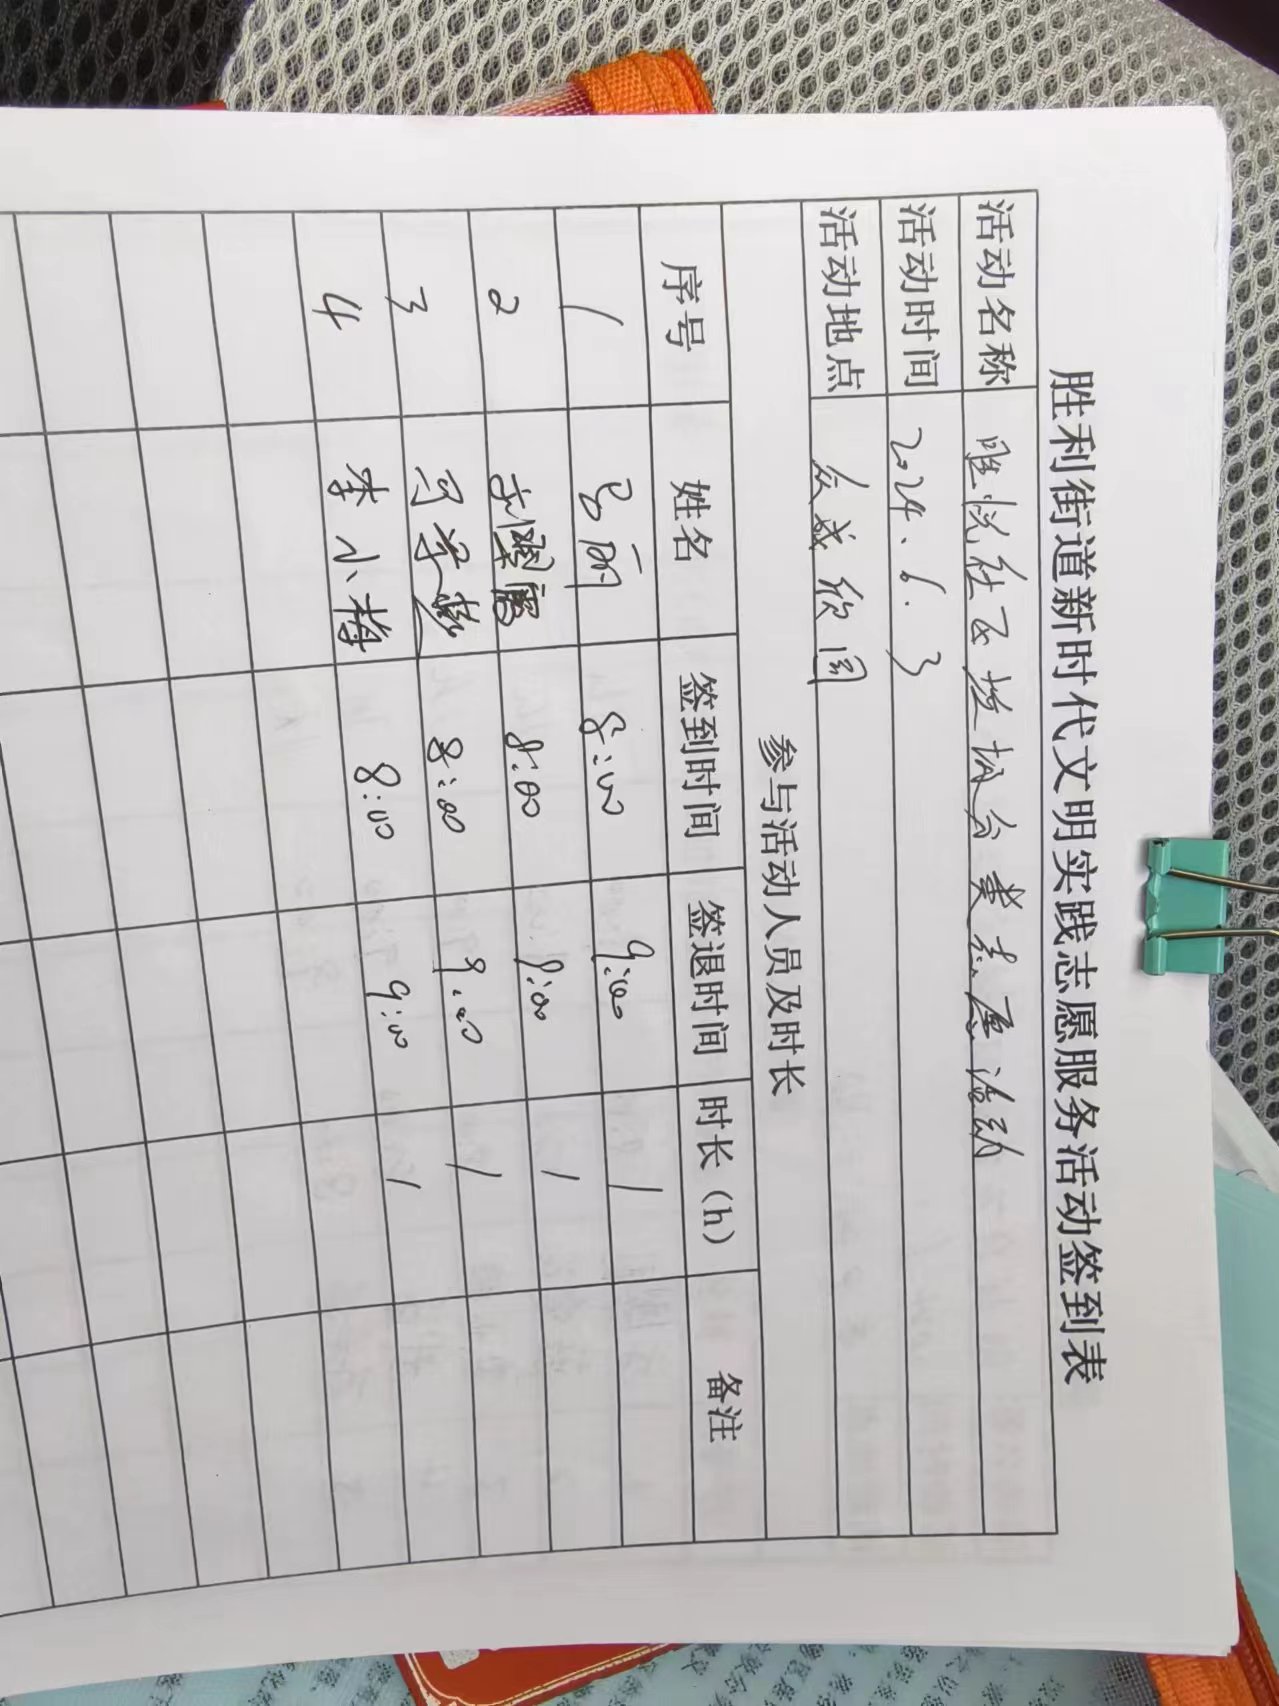 胜利街道新时代文明实践志愿服务活动签到表
活动名称 胜悦社区 垃圾分类志愿活动
活动时间 2024.6.3
活动地点 众成欣园
参与活动人员及时长
序号 姓名 签到时间 签退时间 时长（h） 备注
1 8:00 9:00 1
2 8:00 9:00 1
3 8:00 9:00 1
4 李小梅 8:00 9:00 1